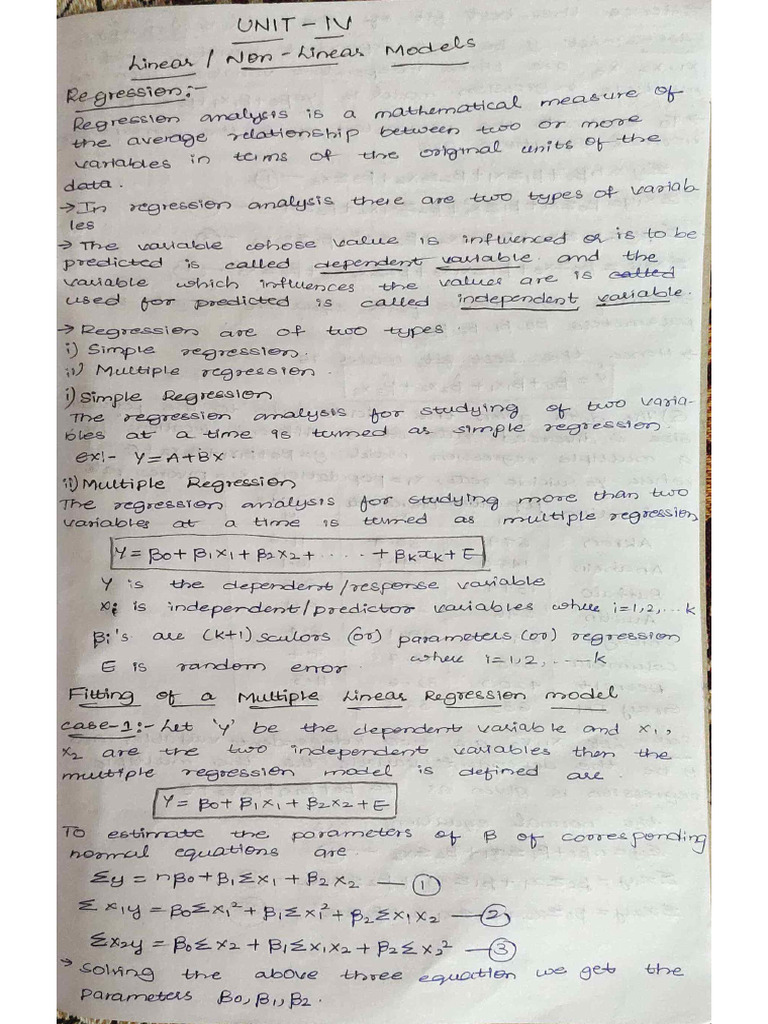 UNIT - IV
Linear / Non-Linear Models
Regression:-
Regression analysis is a mathematical measure of
the average relationship between two or more
variables in terms of the original units of the
data.
→ In regression analysis there are two types of variab-
les
→ The variable whose value is influenced or is to be
predicted is called dependent variable and the
variable which influences the values are is called
used for predicted is called independent variable.
→ Regression are of two types.
i) Simple regression.
ii) Multiple regression.
i) Simple Regression
The regression analysis for studying of two varia-
bles at a time is turmed as simple regression
ex:- Y=A+BX
ii) Multiple Regression
The regression analysis for studying more than two
variables at a time is turmed as multiple regression
Y = β0 + β1X1 + β2X2 + ..... + βkxk + E
Y is the dependent/response variable
xi is independent/predictor variables where i=1,2,...k
βi's are (k+1) scalors (or) parameters (or) regression
E is random error. where i=1,2,....k
Fitting of a Multiple Linear Regression model
case-1:- Let 'y' be the dependent variable and x1,
x2 are the two independent variables then the
multiple regression model is defined are.
Y = β0 + β1X1 + β2X2 + E
To estimate the parameters of β of corresponding
normal equations are.
Σy = nβ0 + β1Σx1 + β2x2 — ①
Σx1y = β0Σx1² + β1Σx1² + β2Σx1x2 — ②
Σx2y = β0Σx2 + β1Σx1x2 + β2Σx2² — ③
→ Solving the above three equation we get the
parameters β0, β1, β2.